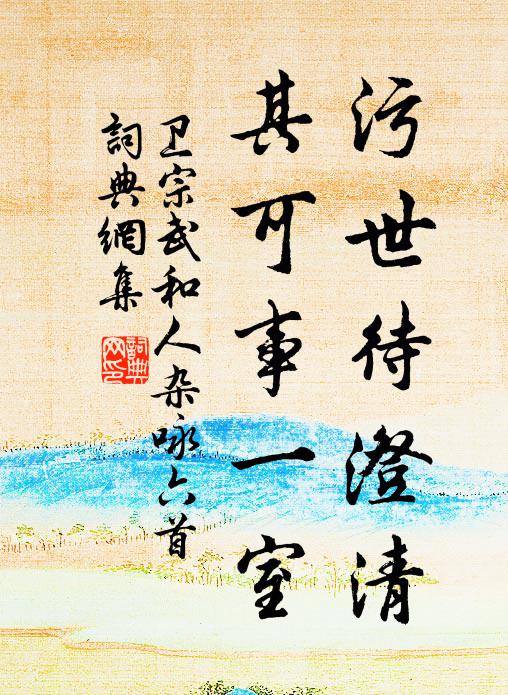 污世待澄清
其可事一室
卫宗武和人杂咏六首
詞典網集
詞典網印